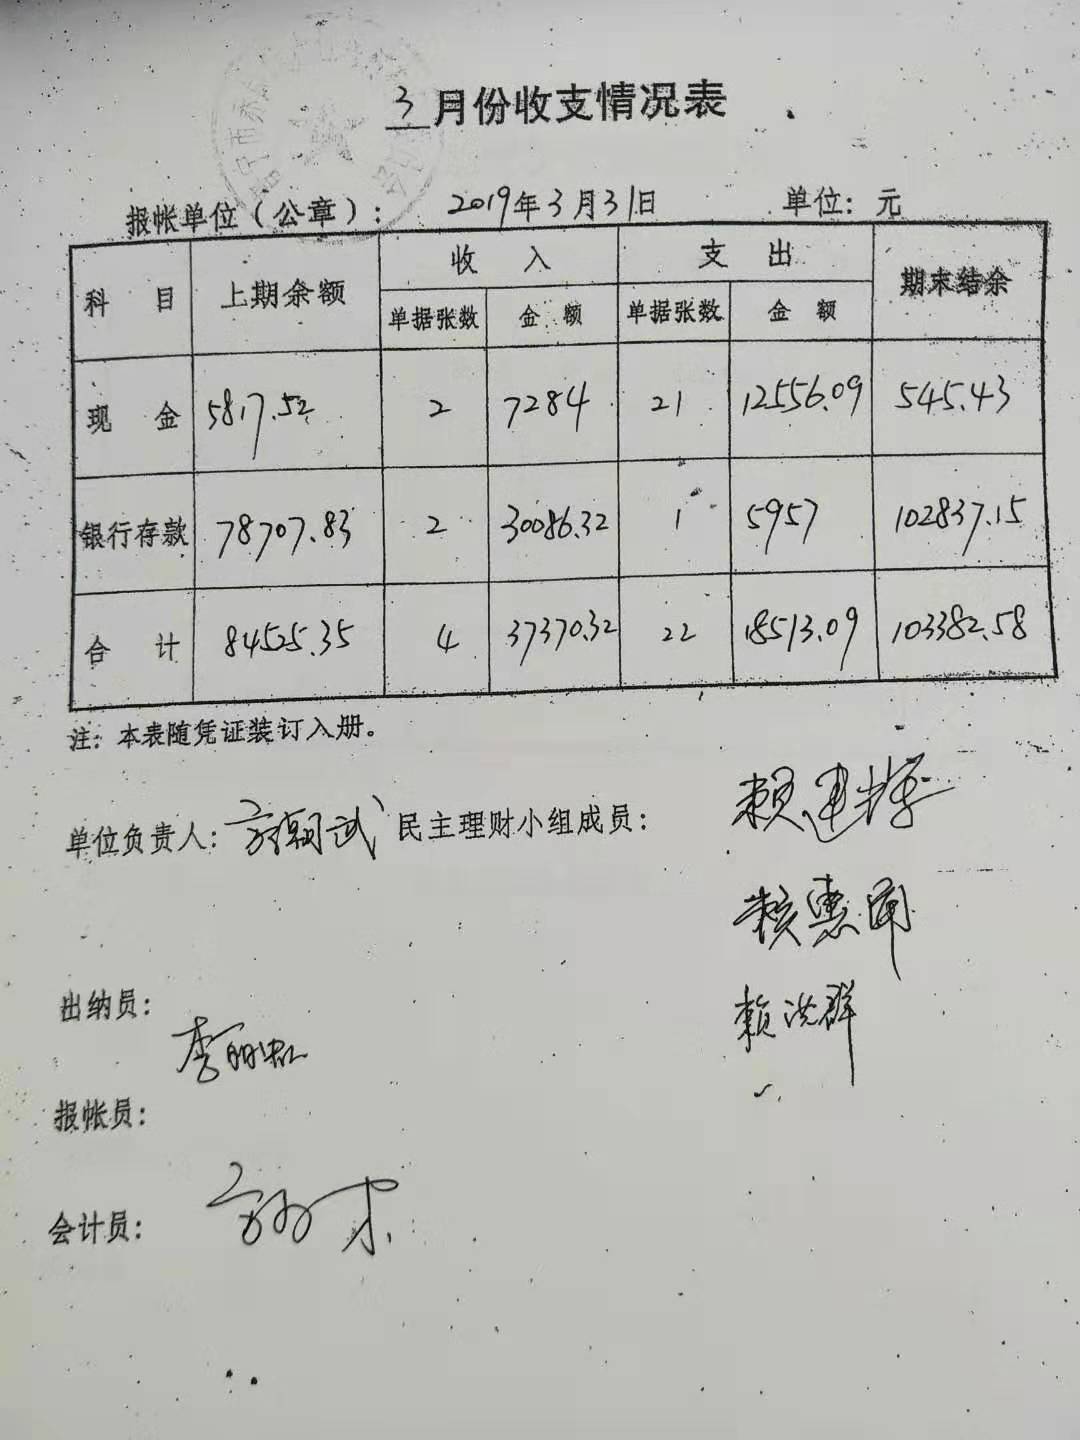 3月份收支情况表
报帐单位（公章）： 2019年3月31日 单位：元
科 目 上期余额 收 入 支 出 期末结余
单据张数 金 额 单据张数 金 额
现 金 5817.52 2 7284 21 12556.09 545.43
银行存款 78707.83 2 30086.32 1 5957 102837.15
合 计 84525.35 4 37370.32 22 18513.09 103382.58
注：本表随凭证装订入册。
单位负责人： 民主理财小组成员： 赖建
赖惠
出纳员： 赖洪群
李
报帐员：
会计员：